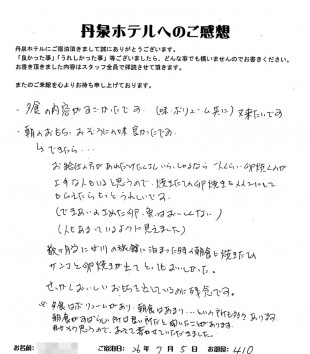 丹泉ホテルへのご感想
丹泉ホテルにご宿泊頂きまして誠にありがとうございます。
「良かった事」「うれしかった事」等ございましたら、どんな事でも構いませんのでお書きください。
お書き頂きました内容はスタッフ全員で拝読させて頂きます。
またのご来館を心よりお待ち申し上げております。
・夕食の内容がすごかったです。(味・ボリューム共に)又来たいです
・朝のおもち、おぞうにの味良かたです。
できたら…
お給仕の方があれだけたくさんいらっしゃるなら 一人くらい卵焼くのが
上手な人もいると思うので、焼きたての卵焼きを
もらえたらもっとうれしいです。
(できあいのさめた卵、魚はおいしくない)
(人もあまっているように見えました)
数ヶ月前に の旅館に泊まった時の朝食に焼きたての
サンマと卵焼きが出てとってもおいしかった。
せっかくおいしいおもちを出しているのに残念です。
※夕食はボリュームがあり、朝食はあまり…という所も多々あります。
朝食がすばらしい所は良い所だと聞いたことがあります。
私もそう思うので、あえて書かせていただきました。
お名前: ご宿泊日: 26年 7月 5日 お部屋: 410